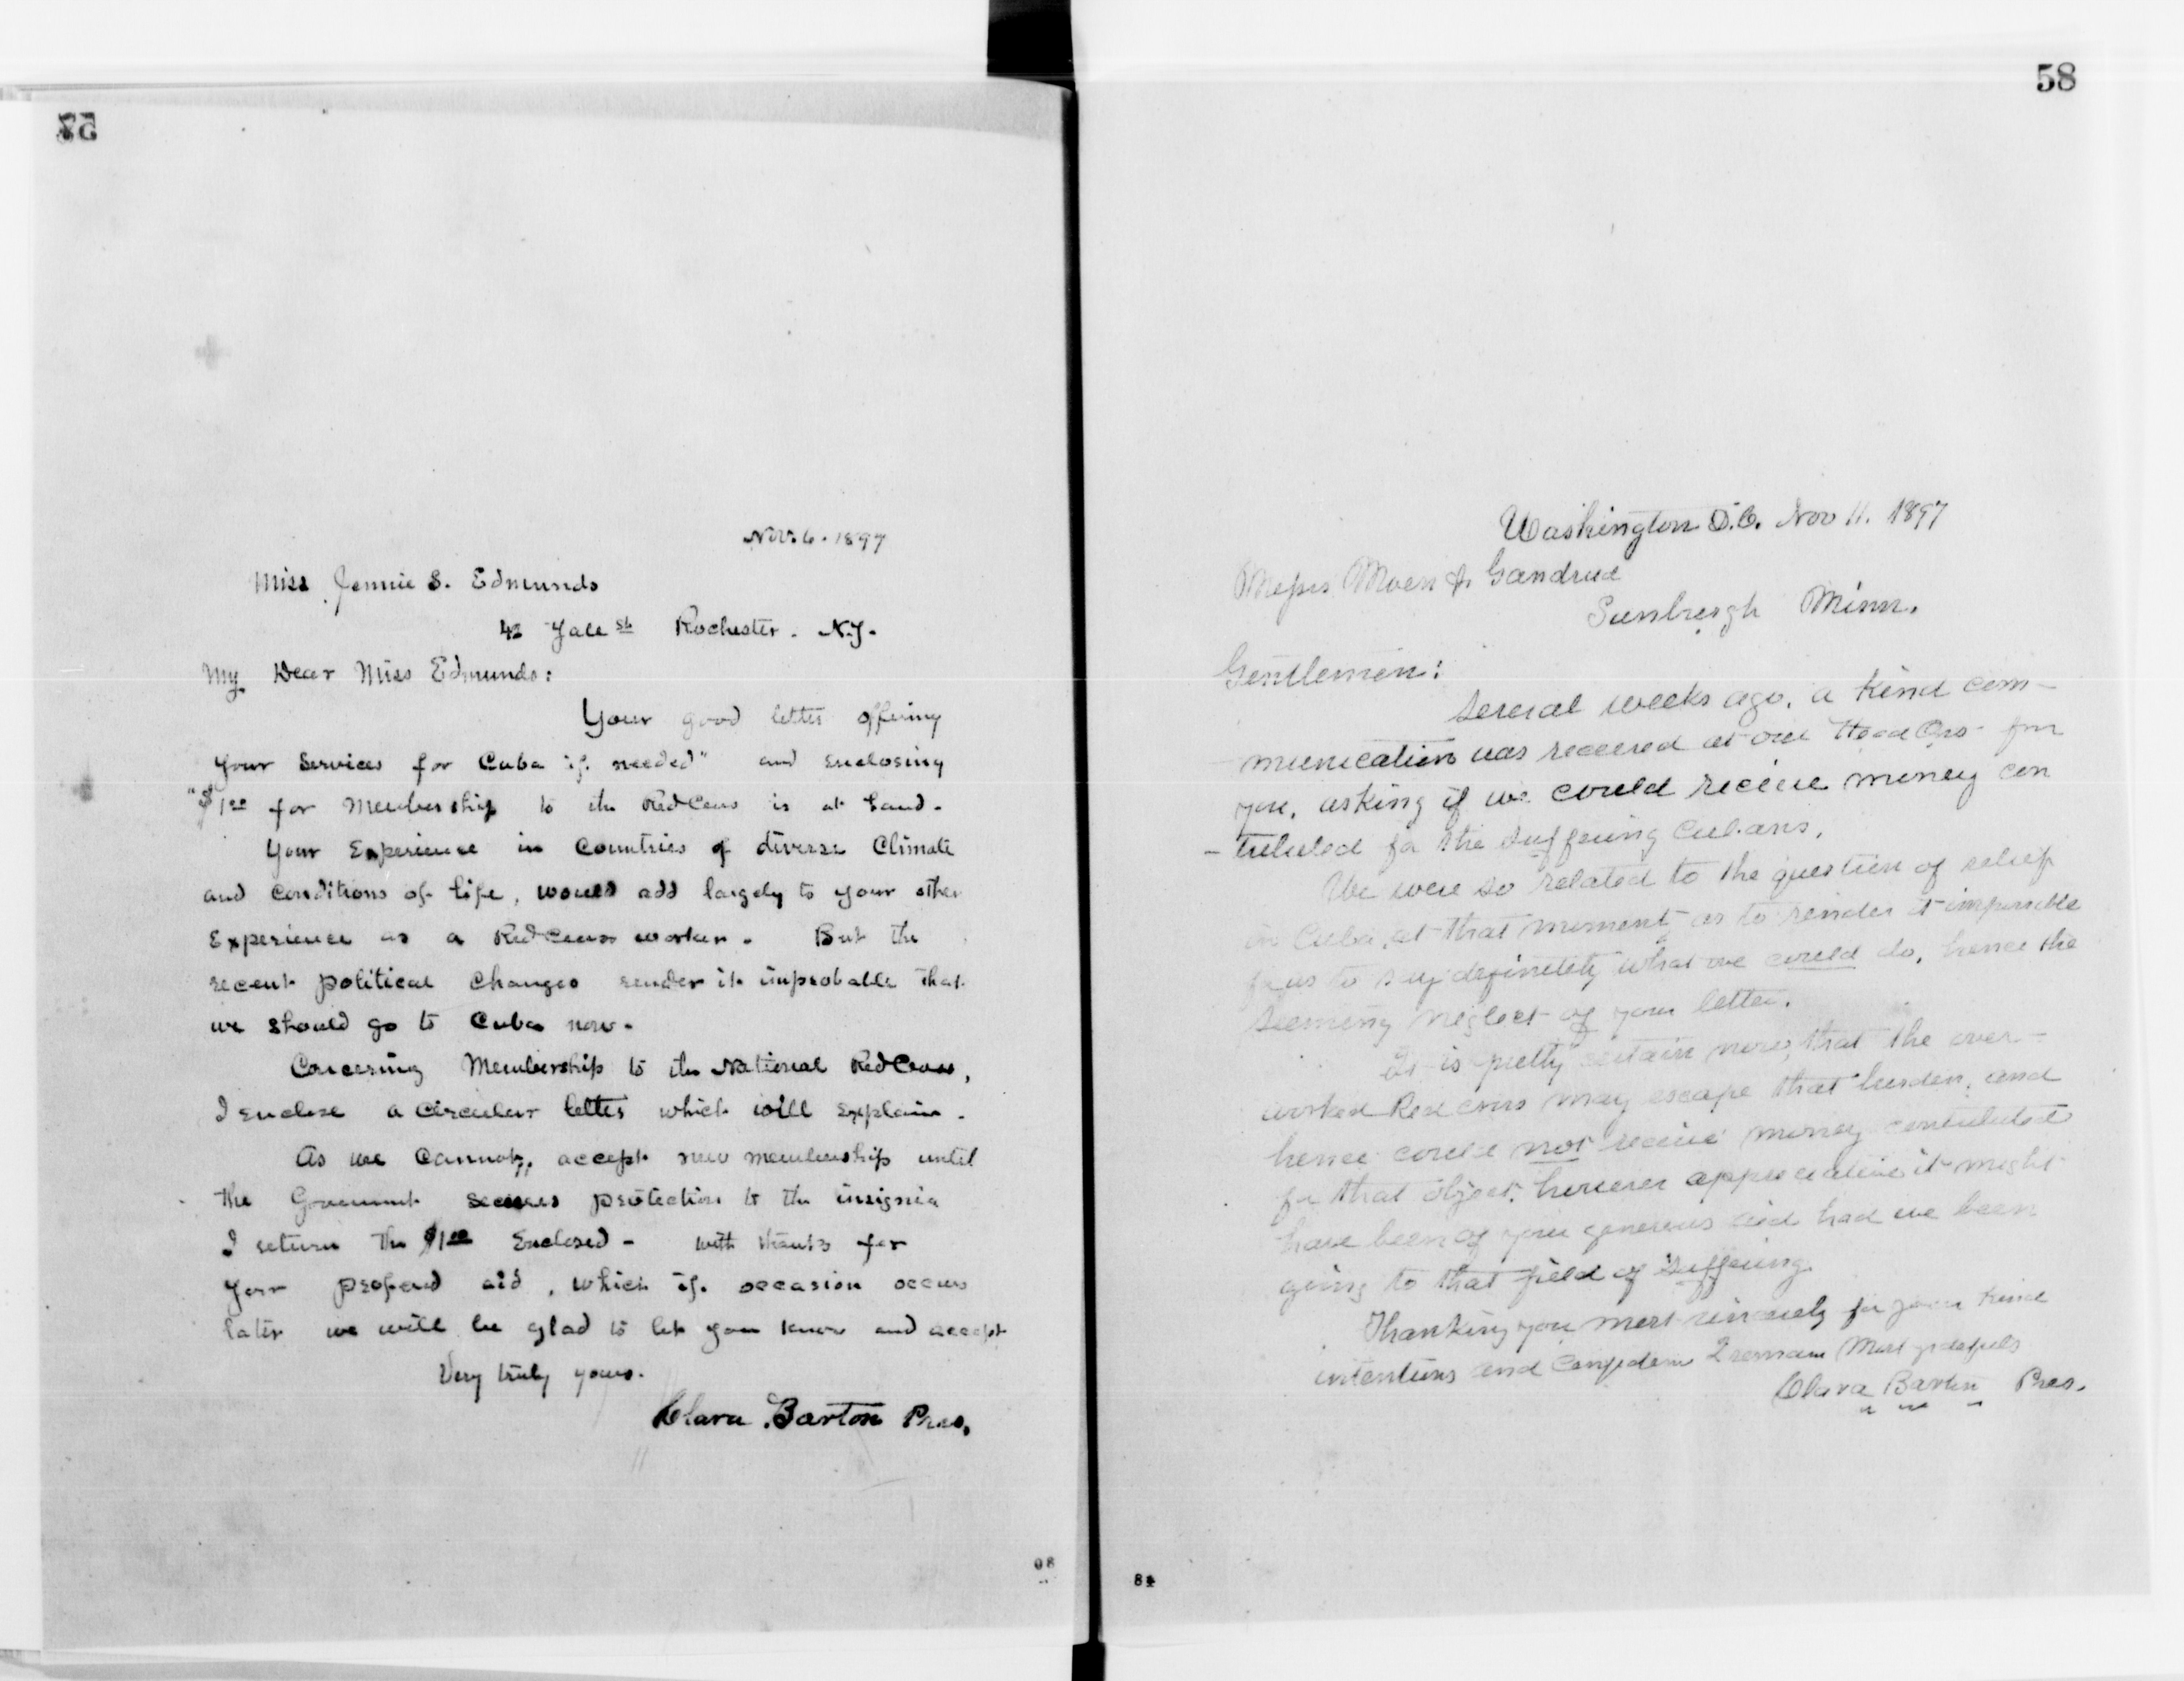 57
Nov. 6. 1897
Miss Jennie S. Edmunds
42 Yale St Rochester. N.Y.
My Dear Miss Edmunds:
Your good letter offering
your services for Cuba if needed" and enclosing
"$1.00 for Membership to the Red Cross is at hand.
Your Experience in Countries of diverse Climate
and conditions of life, would add largely to your other
Experience as a Red Cross worker. But the
recent political changes render it improbable that
we should go to Cuba now.
Concerning Membership to the National Red Cross,
I enclose a circular letter which will explain.
As we cannot, accept new membership until
the Government secures protection to the insignia
I return the $1.00 Enclosed - with thanks for
your profered aid, which if occasion occurs
later we will be glad to let you know and accept
Very truly yours.
Clara Barton Pres.
08
58
Washington D.C. Nov 11. 1897
Messrs Moen & Gandrud
Sunbergh Minn.
Gentlemen:
Several weeks ago, a kind com-
munication was received at our Head Qrs from
you, asking if we could receive money con
-tributed for the suffering Cubans.
We were so related to the question of relief
in Cuba, at that moment, as to render it impossible
for us to say definitely what we could do, hence the
seeming neglect of your letter.
It is pretty certain now, that the over-
worked Red Cross may escape that burden, and
hence could not receive money contributed
for that object, however appreciative it might
have been of your generous aid had we been
going to that field of suffering.
Thanking you most sincerely for your kind
intentions and confidence I remain Most gratefully
Clara Barton Pres.
84